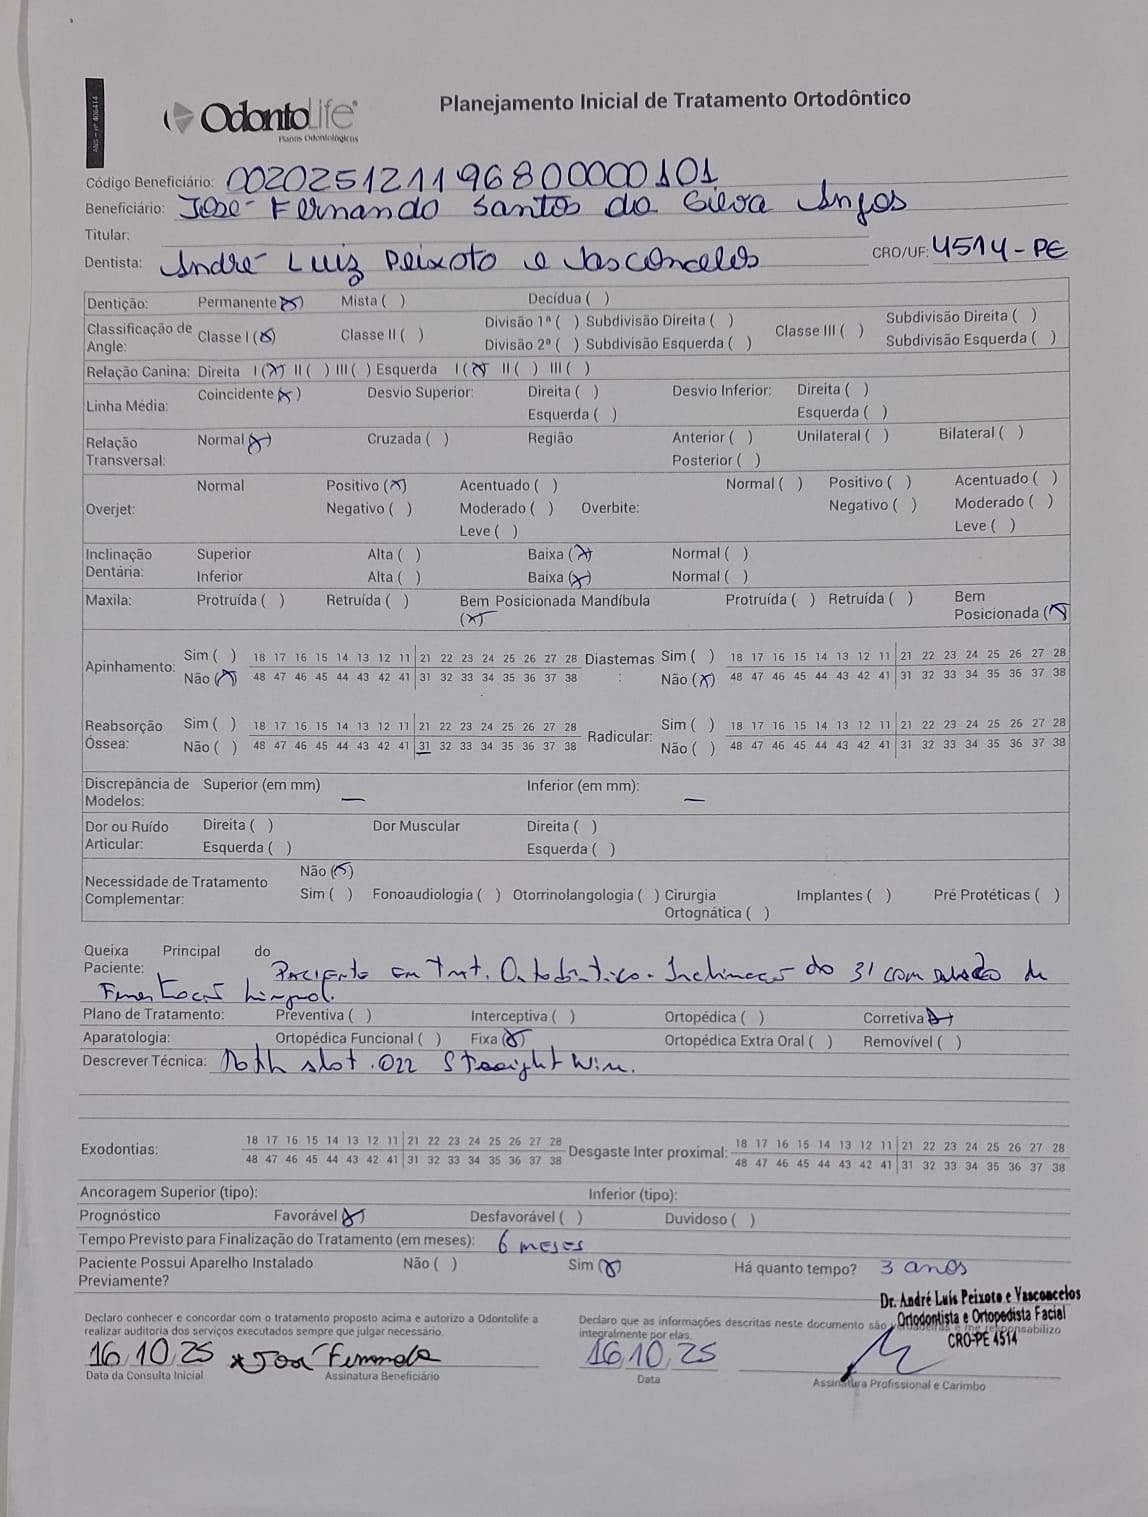 ANS - nº 406414
OdontoLife
Planos Odontológicos
Planejamento Inicial de Tratamento Ortodôntico
Código Beneficiário: 00202512119680000010 1
Beneficiário: José Fernando Santos da Silva Anjos
Titular:
Dentista: André Luiz Peixoto e Vasconcelos CRO/UF: 4514-PE
Dentição: Permanente (X) Mista ( ) Decídua ( )
Classificação de Angle: Classe I (X) Classe II ( ) Divisão 1ª ( ) Subdivisão Direita ( ) Divisão 2ª ( ) Subdivisão Esquerda ( ) Classe III ( ) Subdivisão Direita ( ) Subdivisão Esquerda ( )
Relação Canina: Direita I (X) II ( ) III ( ) Esquerda I (X) II ( ) III ( )
Linha Média: Coincidente (X) Desvio Superior: Direita ( ) Esquerda ( ) Desvio Inferior: Direita ( ) Esquerda ( )
Relação Transversal: Normal (X) Cruzada ( ) Região Anterior ( ) Posterior ( ) Unilateral ( ) Bilateral ( )
Overjet: Normal Positivo (X) Negativo ( ) Acentuado ( ) Moderado ( ) Leve ( ) Overbite: Normal ( ) Positivo ( ) Negativo ( ) Acentuado ( ) Moderado ( ) Leve ( )
Inclinação Dentária: Superior Alta ( ) Baixa (X) Normal ( )
Inferior Alta ( ) Baixa (X) Normal ( )
Maxila: Protruída ( ) Retruída ( ) Bem Posicionada (X) Mandíbula Protruída ( ) Retruída ( ) Bem Posicionada (X)
Apinhamento: Sim ( ) Não (X) 18 17 16 15 14 13 12 11 21 22 23 24 25 26 27 28
48 47 46 45 44 43 42 41 31 32 33 34 35 36 37 38
Diastemas: Sim ( ) Não (X) 18 17 16 15 14 13 12 11 21 22 23 24 25 26 27 28
48 47 46 45 44 43 42 41 31 32 33 34 35 36 37 38
Reabsorção Óssea: Sim ( ) Não ( ) 18 17 16 15 14 13 12 11 21 22 23 24 25 26 27 28
48 47 46 45 44 43 42 41 31 32 33 34 35 36 37 38
Radicular: Sim ( ) Não ( ) 18 17 16 15 14 13 12 11 21 22 23 24 25 26 27 28
48 47 46 45 44 43 42 41 31 32 33 34 35 36 37 38
Discrepância de Modelos: Superior (em mm) — Inferior (em mm): —
Dor ou Ruído Articular: Direita ( ) Esquerda ( ) Dor Muscular Direita ( ) Esquerda ( )
Necessidade de Tratamento Complementar: Não (X) Sim ( ) Fonoaudiologia ( ) Otorrinolangologia ( ) Cirurgia Ortognática ( ) Implantes ( ) Pré Protéticas ( )
Queixa Principal do
Paciente: Paciente em Trat. Ortodôntico. Inclinação do 31 com
lingual.
Plano de Tratamento: Preventiva ( ) Interceptiva ( ) Ortopédica ( ) Corretiva (X)
Aparatologia: Ortopédica Funcional ( ) Fixa (X) Ortopédica Extra Oral ( ) Removível ( )
Descrever Técnica: Roth slot .022 Straight Wire.
Exodontias: 18 17 16 15 14 13 12 11 21 22 23 24 25 26 27 28
48 47 46 45 44 43 42 41 31 32 33 34 35 36 37 38
Desgaste Inter proximal: 18 17 16 15 14 13 12 11 21 22 23 24 25 26 27 28
48 47 46 45 44 43 42 41 31 32 33 34 35 36 37 38
Ancoragem Superior (tipo): Inferior (tipo):
Prognóstico Favorável (X) Desfavorável ( ) Duvidoso ( )
Tempo Previsto para Finalização do Tratamento (em meses): 6 meses
Paciente Possui Aparelho Instalado Previamente? Não ( ) Sim (X) Há quanto tempo? 3 anos
Declaro conhecer e concordar com o tratamento proposto acima e autorizo a Odontolife a
realizar auditoria dos serviços executados sempre que julgar necessário.
16/10/25 x José Fernando
Data da Consulta Inicial Assinatura Beneficiário
Declaro que as informações descritas neste documento são me responsabilizo
integralmente por elas.
16/10/25
Data
Dr. André Luís Peixoto e Vasconcelos
Ortodontista e Ortopedista Facial
CRO-PE 4514
Assinatura Profissional e Carimbo